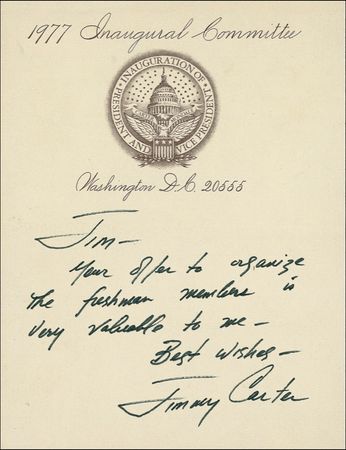 1977 Inaugural Committee
INAUGURATION OF PRESIDENT AND VICE PRESIDENT
Washington D.C. 20555
Jim—
Your offer to organize
the freshman members is
very valuable to me—
Best wishes—
Jimmy Carter